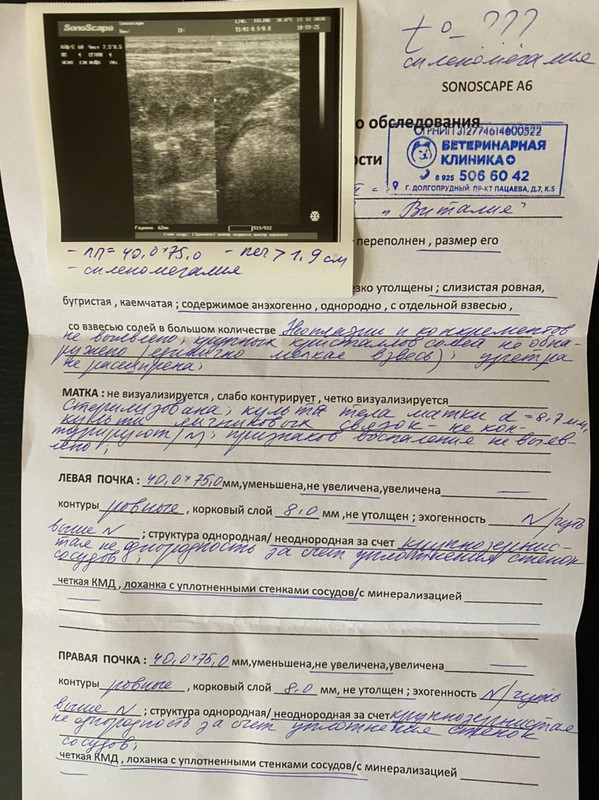 SonoScape
t° - ???
спленомегалия
SONOSCAPE A6
о обследования
ОГРНИП 312774614600522
ВЕТЕРИНАРНАЯ
КЛИНИКА
8 925 506 60 42
Г. ДОЛГОПРУДНЫЙ, ПР-КТ ПАЦАЕВА, Д.7, К.5
ости
"Виталия"
переполнен , размер его
- ЛП= 40,0*75,0 - печ > 1.9 см
- спленомегалия
зко утолщены ; слизистая ровная,
бугристая , каемчатая ; содержимое анэхогенно , однородно , с отдельной взвесью ,
со взвесью солей в большом количестве Неоплазии и конкрементов
не выявлено; крупных кристаллов солей не обна-
ружено (единично мелкая взвесь); уретра
не расширена;
МАТКА : не визуализируется , слабо контурирует , четко визуализируется
Стерилизована; культя тела матки d = 8,7 мм,
культи яичниковых связок - не кон-
турируют /N; признаков воспаления не выяв-
лено;
ЛЕВАЯ ПОЧКА : 40,0*75,0 мм,уменьшена,не увеличена,увеличена
контуры ровные , корковый слой 8,0 мм ,не утолщен ; эхогенность N/чуть
выше N ; структура однородная/ неоднородная за счет крупнозернис-
тая неоднородность за счет уплотнения стенок
сосудов;
четкая КМД , лоханка с уплотненными стенками сосудов/с минерализацией
ПРАВАЯ ПОЧКА : 40,0*75,0 мм,уменьшена,не увеличена,увеличена
контуры ровные , корковый слой 8,0 мм, не утолщен ; эхогенность N/чуть
выше N ; структура однородная/ неоднородная за счет крупнозернистая
неоднородность за счет уплотнения стенок
сосудов;
четкая КМД , лоханка с уплотненными стенками сосудов/с минерализацией